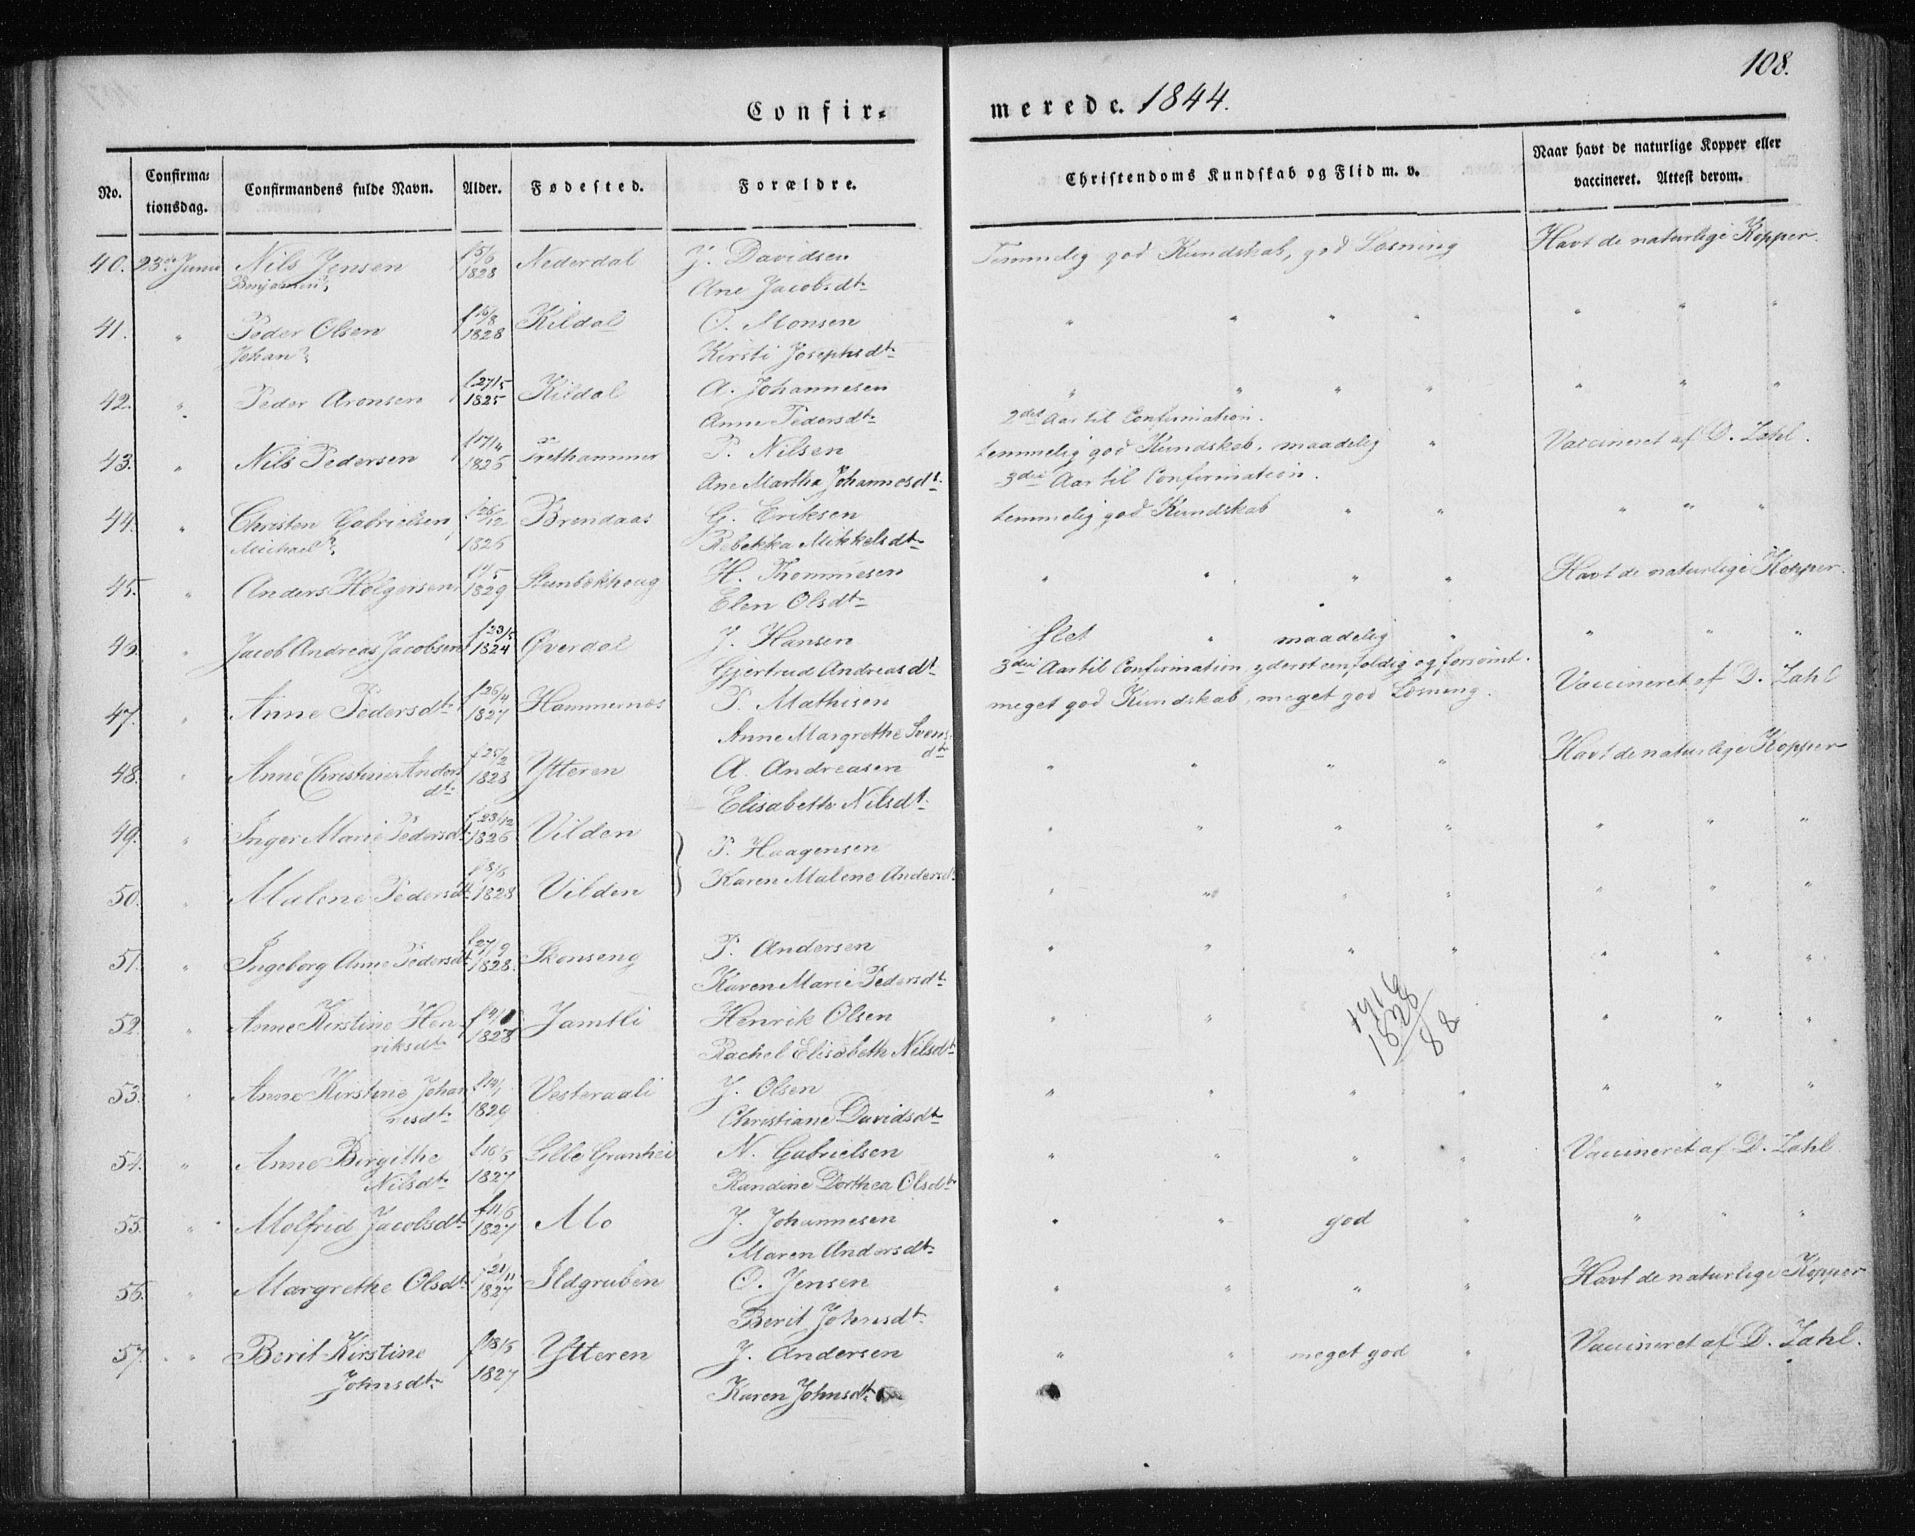 108.
Confir-
merede. 1844.
No.
Confirma-
tionsdag.
Confirmandens fulde Navn.
Alder.
Fødested.
Forældre.
Christendoms Kundskab og Flid m. v.
Naar havt de naturlige Kopper eller
vaccineret. Attest derom.
40. 23de Juni Nils Jensen f 5/6 1828 Nederdal J. Davidsen Temmelig god Kundskab, god Læsning Havt de naturlige Kopper.
Benjamin?, Ane Jacobsdt.
41. " Peder Olsen f 16/8 1828 Kildal O. Monsen " " " " " " "
Johan? Kirsti Josephsdt.
42. " Peder Aronsen f. 27/5 1825 Kildal A. Johannesen " " " " " " "
Anne Pedersdt. 2det Aar til Confirmation.
43. " Nils Pedersen f 17/4 1826 Trethammer P. Nilsen temmelig god Kundskab, maadelig " Vaccineret af D. Zahl.
Ane Martha Johannesdt. 3die Aar til Confirmation.
44. " Christen Gabrielsen f 26/12 1826 Brendaas G. Eriksen temmelig god Kundskab " " " " "
Michael?, Rebekka Mikkelsdt.
45. " Anders Holgersen 1829 Stenbækhoug H. Thommesen " " " " Havt de naturlige Kopper.
Elen Olsdt.
46. " Jacob Andreas Jacobsen f 23/5 1824 Øverdal J. Hansen slet " maadelig " " " "
Gjertrud Andreasdt 3die Aar til Confirmation, yderst eenfoldig og forsømt.
47. " Anne Pedersdt. f 26/4 1827 Hammernæs P. Mathisen meget god Kundskab, meget god Læsning. Vaccineret af D. Zahl
Anne Margrethe Svens-
dt.
48. " Anne Christine Anders f 25/2 1828 Ytteren A. Andreasen " " " " Havt de naturlige Kopper
dt. Elisabeth Nilsdt.
49. " Inger Marie Pedersdt. f 23/12 1826 Vilden P. Haagensen " " " " " " "
50. " Malene Pedersdt. f 8/6 1828 Vilden Karen Malene Andersdt " " " " " " "
51. " Ingeborg Anne Pedersdt f 27/9 1828. Skonseng P. Andersen " " " " " " "
Karen Marie Pedersdt.
52. " Anne Kirstine Hen- 1828 Jamtli Henrik Olsen " " " " "
riksdt. Rachel Elisabeth Nilsdt.
+1916
1828
88
53. " Anne Kirstine Johan 1829 Vesteraali J. Olsen " " " " " " "
nesdt. Christiane Davidsdt.
54. " Anne Birgithe f 16/5 1827 Lille Granhei N. Gabrielsen " " " " Vaccineret af D. Zahl
Nilsdt. Randine Dorthea Olsdt.
55. " Molfrid Jacobsdt. f 11/6 1827 Mo J. Johannesen " " god " " " "
Maren Andersdt.
56. " Margrethe Olsdt. f 21/11 1827 Ildgruben O. Jensen " " " " Havt de naturlige Kopper
Berit Johnsdt.
57. " Berit Kirstine f 18/5 1827 Ytteren J. Andersen " " meget god " Vaccineret af D. Zahl.
Johnsdt. Karen Johnsdt.